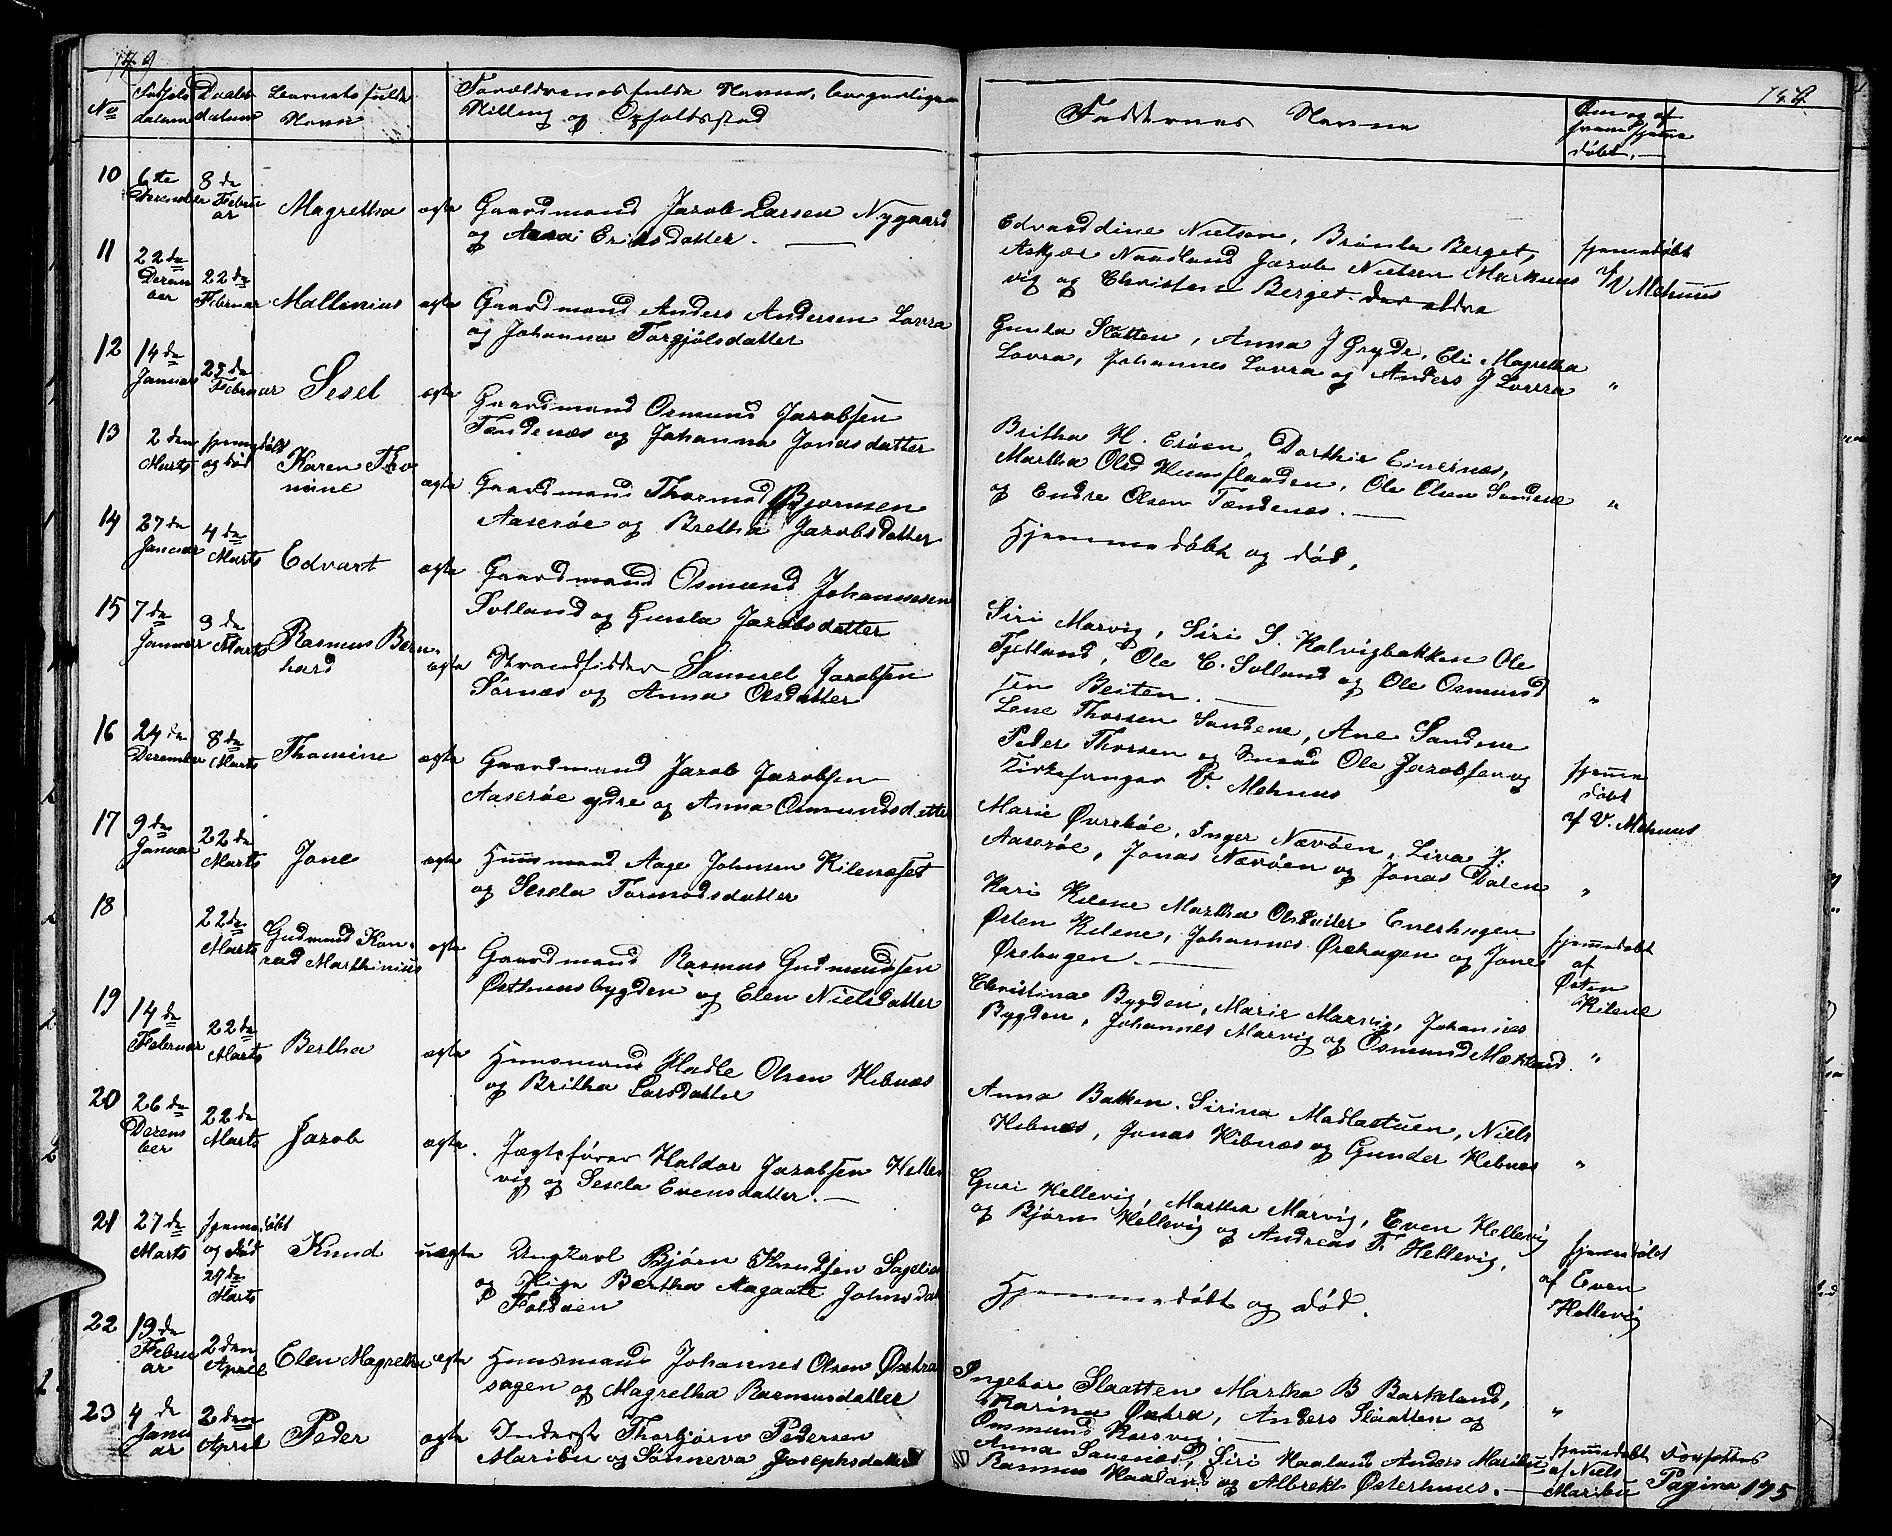 149
No
Fødsels datum
Daabs datum
Barnets fulde Navn
Forældrenes fulde Navne, borgerlige
Stilling og Opholdssted
10
6te December
8de Februar
Magretha
ægte
Gaardmand Jacob Larsen Nygaard
og Anna Eriksdatter.
11
22de December
22de Februar
Mallenius
ægte
Gaardmand Anders Andersen Lovra
og Johanna Torgjølsdatter
12
14de Januar
23de Februar
Sesel
ægte
Gaardmand Osmund Jacobsen
Tændenæs og Johanna Jonasdatter
13
2den Marts
hjemmedøbt og død
Karen Tho
mine
ægte
Gaardmand Thormod Bjornsen
Aaserøe og Bretha Jacobsdatter
14
27de Januar
4de Marts
Edvart
ægte
Gaardmand Osmund Johannesen
Solland og Gunla Jacobsdatter
15
7de Januar
9de Marts
Rasmus Bern
hard
ægte
Strandsidder Samuel Jacobsen
Sørnæs og Anna Olsdatter
16
24de December
8de Marts
Thomine
ægte
Gaardmand Jacob Jacobsen
Aaserøe ydre og Anna Osmundsdatter
17
9de Januar
22de Marts
Jone
ægte
Huusmand Aage Johnsen Kileneset
og Sesela Tormodsdatter
18
22de Marts
Gudmund Kon-
rad Marthinius
ægte
Gaardmand Rasmus Gudmundsen
Østhuusbygden og Elen Nielsdatter
19
14de Februar
22de Marts
Bertha
ægte
Huusmand Hadle Olsen Hebnæs
og Britha Larsdatter
20
26de December
22de Marts
Jacob
ægte.
Jægtefører Haldor Jacobsen Helle
vig og Sesela Evensdatter.
21
27de Marts
hjemmedøbt og død 27de Marts
Knud
uægte
Ungkarl Bjørn Knudsen Sagelien
og Pige Bertha Aagaate Johnsdat
Foldøen
22
19de Februar
2den April
Elen Magretha
ægte
Huusmand Johannes Olsen Østra
sagen og Magretha Rasmusdatter
23
4de Januar
2den April
Peder
ægte
Inderst Thorbjørn Pedersen
Maribu og Sønneva Josephsdatter
Faddernes Navne
Om og af hvem hjemme døbt.
Edvarddine Nielsen, Brønla Berget,
Askjær Naadland Jacob Nielsen Markhuus
vig og Christian Berget den ældre
hjemmedøbt
af V Mehuus
Gunla Slatten, Anna J Gryde, Eli Magretha
Lovra, Johannes Lovra og Anders J Lovra
"
Britha H. Erøen, Dorthie Einernæs,
Martha Olsd Humflaaden, Ole Olsen Sandene
og Endre Olsen Tændenæs.
"
Hjemmedøbt og død,
Siri Marvig, Siri S. Kalvigbakken Ole
Fjetland, Ole C. Solland og Ole Osmund
sen Beiten.
"
Lene Thorsen Sandene, Ane Sandene
Peder Thorsen og Ole Jacobsen og
Kirkesanger V. Mehuus
hjemme
døbt
af V. Mehuus
Marie Øvrebøe, Inger Nævøen, Liva J.
Aaserøe, Jonas Nævøen og Jonas Dalen
"
Kari Kilene Martha Olsdatter Everhagen
Østen Kilene, Johannes Ørehagen og Jone
Ørehagen.
hjemmedøbt
af
Østen
Kilene
Christina Bygden, Marie Marvig, Johannes
Bygden, Johannes Marvig og Osmund Mækland.
"
Anna Bakken. Sirina Madlastuen, Niels
Hebnæs, Jonas Hebnæs og Gunder Hebnæs
"
Guri Hellevig, Martha Marvig, Even Hellevig
og Bjørn Hellevig og Andreas F. Hellevig.
hjemmedøbt
af Even
Hellevig
Hjemmedøbt og død.
Ingebor Slaatten Martha B Barkeland,
Karina Østra, Anders Slaatten og
Osmund Karsvig.
"
Anna Sauenæs, Siri Haaland Anders Maribu
Rasmus Haaland og Albrekt Østerhuus.
hjemmedøbt
af Niels
Maribu
Forsættes
Pagina 175